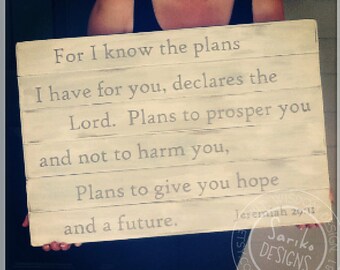 For I know the plans
I have for you, declares the
Lord. Plans to prosper you
and not to harm you,
Plans to give you hope
and a future. Jeremiah 29:11
Sariko
DESIGNS